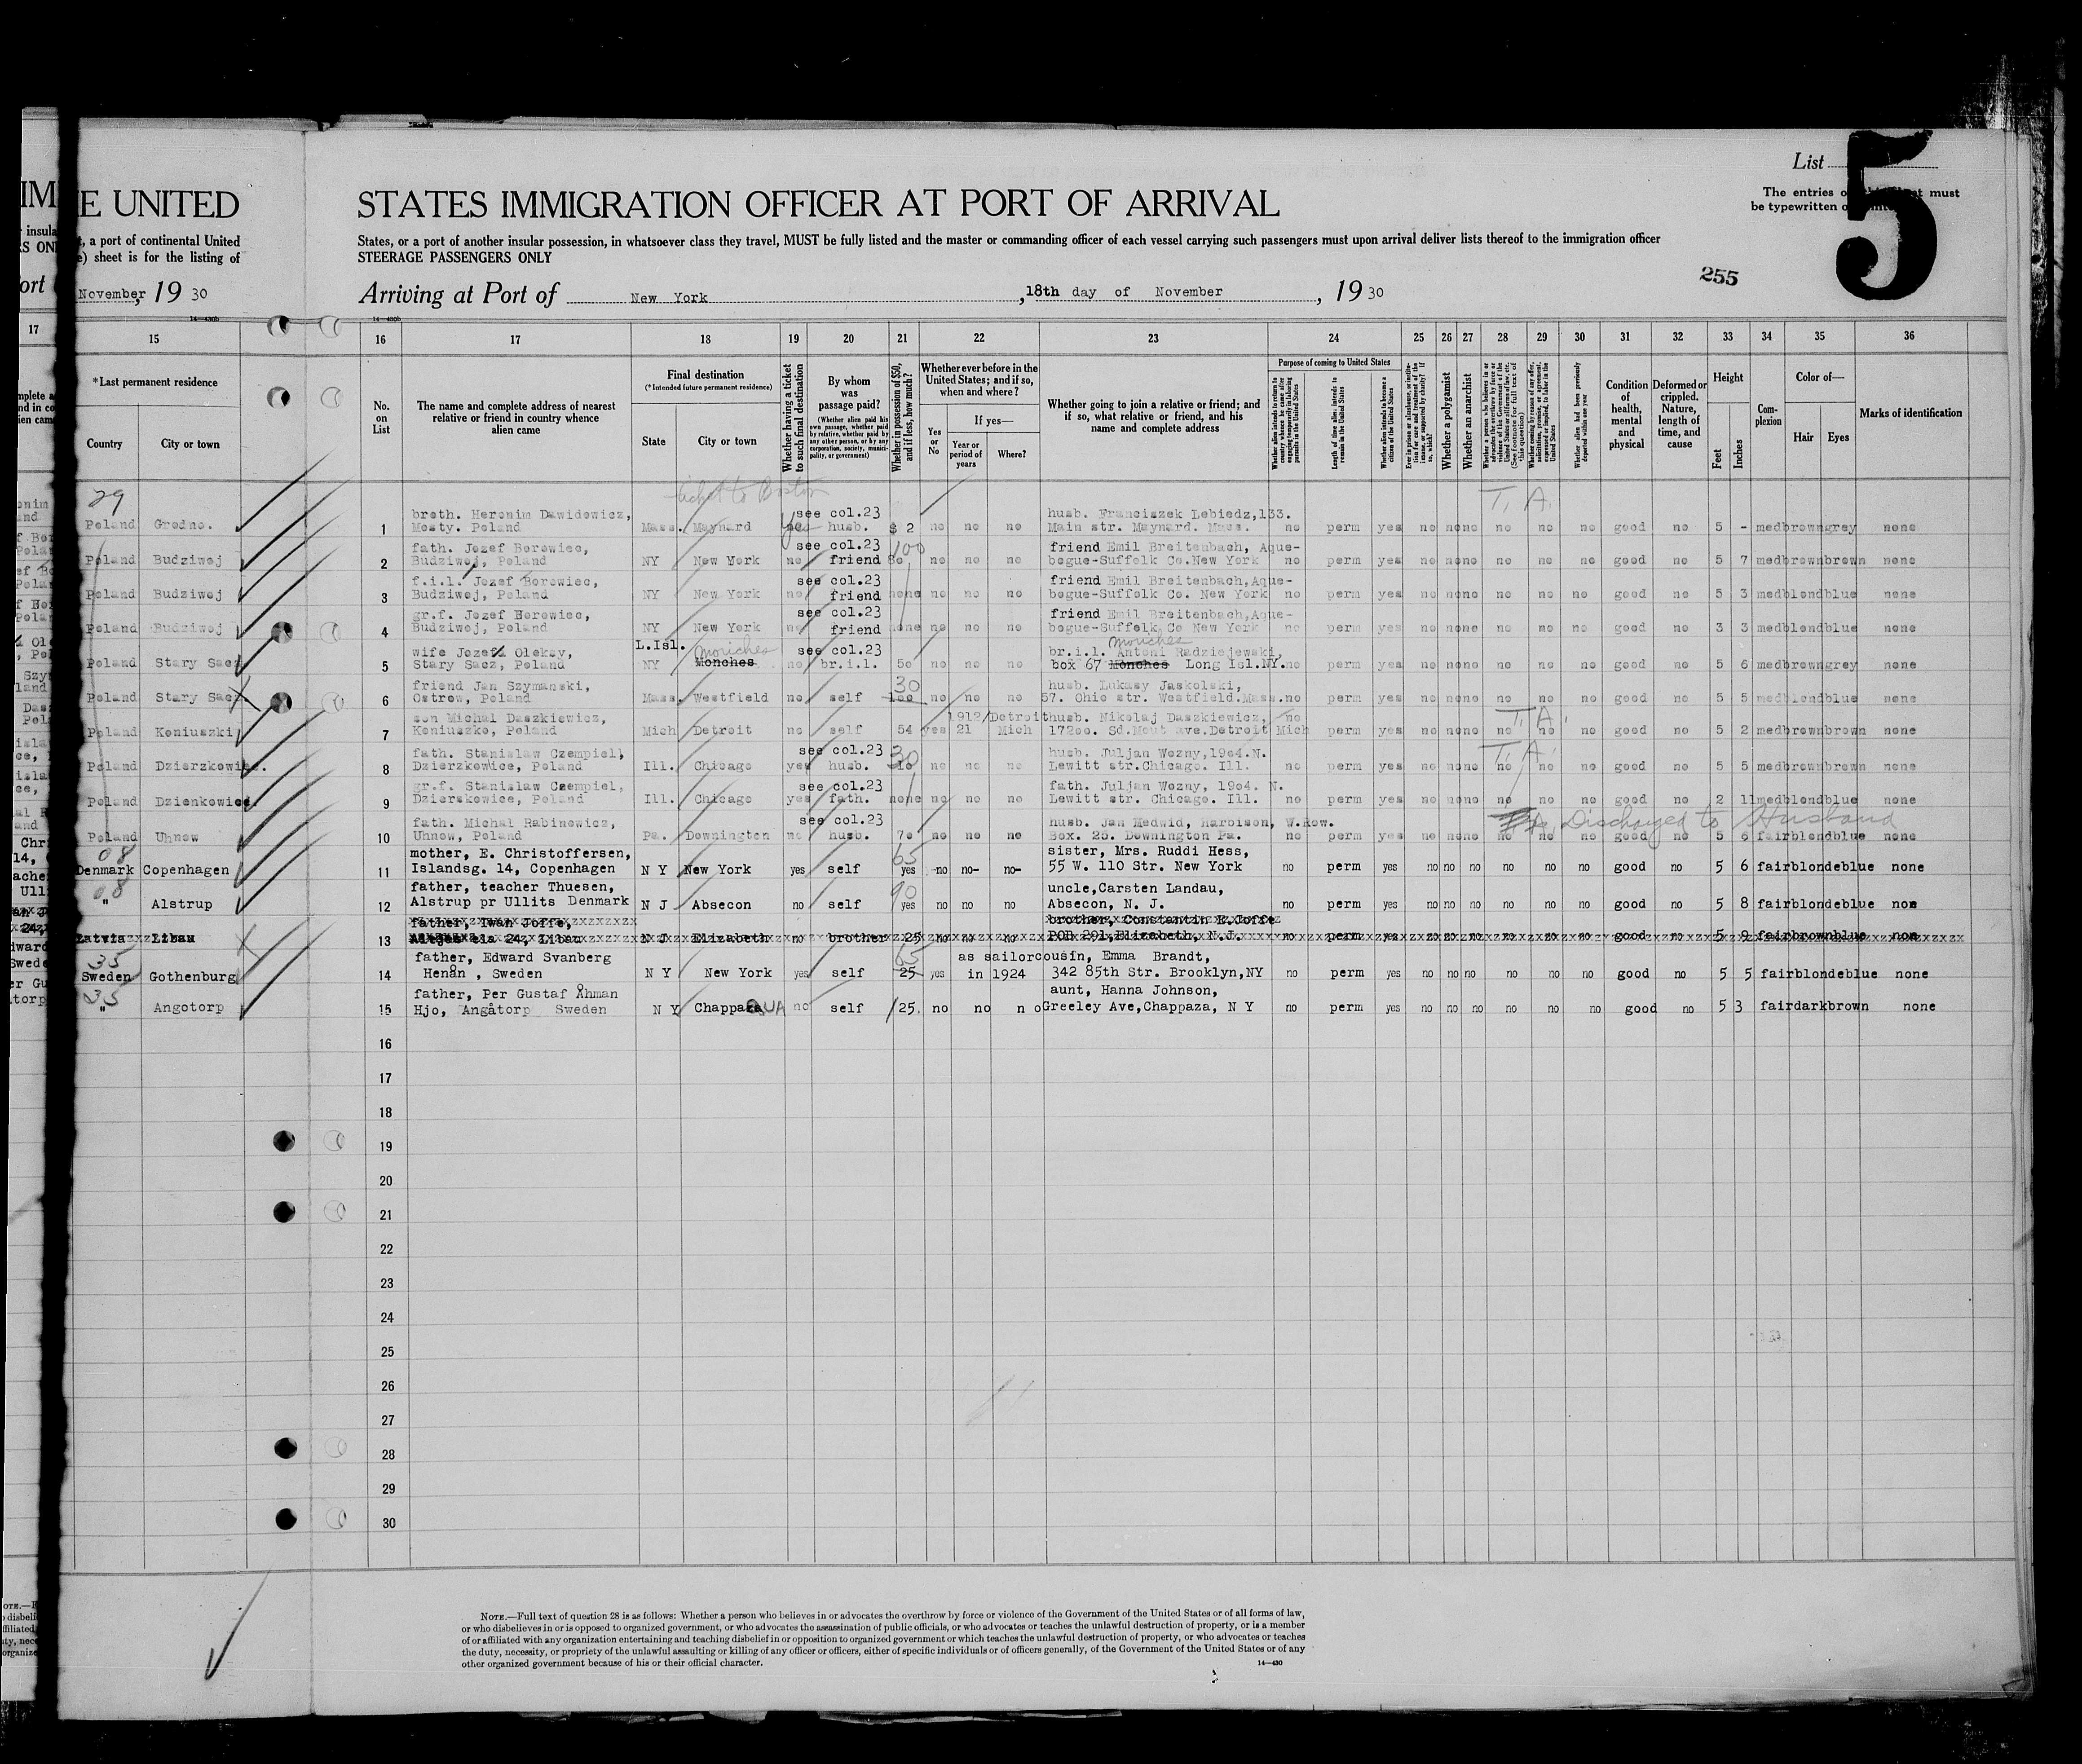 List 5
The entries on this sheet must
be typewritten or printed
E UNITED STATES IMMIGRATION OFFICER AT PORT OF ARRIVAL
, a port of continental United States, or a port of another insular possession, in whatsoever class they travel, MUST be fully listed and the master or commanding officer of each vessel carrying such passengers must upon arrival deliver lists thereof to the immigration officer
e) sheet is for the listing of STEERAGE PASSENGERS ONLY
255
November, 19 30 Arriving at Port of New York, 18th day of November, 19 30
14—430b 14—430b
15 16 17 18 19 20 21 22 23 24 25 26 27 28 29 30 31 32 33 34 35 36
*Last permanent residence
Country
City or town
No. on List
The name and complete address of nearest relative or friend in country whence alien came
Final destination
(*Intended future permanent residence)
State
City or town
Whether having a ticket to such final destination
By whom was passage paid?
(Whether alien paid his own passage, whether paid by relative, whether paid by any other person, or by any corporation, society, municipality, or government)
Whether in possession of $50, and if less, how much?
Whether ever before in the United States; and if so, when and where?
Yes or No
If yes—
Year or period of years
Where?
Whether going to join a relative or friend; and if so, what relative or friend, and his name and complete address
Purpose of coming to United States
Whether alien intends to return to country whence he came after engaging temporarily in laboring pursuits in the United States
Length of time alien intends to remain in the United States
Whether alien intends to become a citizen of the United States
Whether a polygamist
Whether an anarchist
Whether alien had been previously deported within one year
Condition of health, mental and physical
Deformed or crippled. Nature, length of time, and cause
Height
Feet
Inches
Complexion
Color of—
Hair
Eyes
Marks of identification
29 ticket to Boston T. A.
broth. Heronim Dawidowicz, see col.23 husb. Franciszek Lebiedz,133.
Poland Grodno. 1 Mosty. Poland Mass. Maynard yes husb. $ 2 no no no Main str. Maynard. Mass. no perm yes no no no no no no good no 5 - med brown grey none
fath. Jozef Borowiec, see col.23 100 friend Emil Breitenbach, Aque-
Poland Budziwoj 2 Budziwoj, Poland NY New York no friend 80 no no no bogue-Suffolk Co.New York no perm yes no no no no no no good no 5 7 med brown brown none
f.i.l. Jozef Borowiec, see col.23 friend Emil Breitenbach,Aque-
Poland Budziwoj 3 Budziwoj, Poland NY New York no friend none no no no bogue-Suffolk Co. New York no perm yes no no no no no no good no 5 3 med blond blue none
gr.f. Jozef Borowiec, see col.23 friend Emil Breitenbach,Aque-
Poland Budziwoj 4 Budziwoj, Poland NY New York no friend none no no no bogue-Suffolk Co New York no perm yes no no no no no no good no 3 3 med blond blue none
wife Jozefa Oleksy, L.Isl. Moriches see col.23 br.i.l. Antoni Radziejewski, Moriches
Poland Stary Sacz 5 Stary Sacz, Poland NY Monches no br.i.l. 50 no no no box 67 Monches Long Isl.NY. no perm yes no no no no no no good no 5 6 med brown grey none
friend Jan Szymanski, 30 husb. Lukasy Jaskolski,
Poland Stary Sacz 6 Ostrow, Poland Mass. Westfield no self 100 no no no 57. Ohio str. Westfield.Mass. no perm yes no no no no no no good no 5 5 med blond blue none
son Michal Daszkiewicz, 1912/ Detroit husb. Nikolaj Daszkiewicz, no T. A.
Poland Koniuszki 7 Koniuszko, Poland Mich Detroit no self 54 yes 21 Mich 17200. Sd.Mout ave.Detroit Mich perm yes no no no no no no good no 5 2 med brown brown none
fath. Stanislaw Czempiel, see col.23 30 husb. Juljan Wozny,1904.N. T. A.
Poland Dzierzkowice. 8 Dzierzkowice, Poland Ill. Chicago yes husb. 10 no no no Lewitt str.Chicago. Ill. no perm yes no no no no no no good no 5 5 med brown brown none
gr.f. Stanislaw Czempiel, see col.23 fath. Juljan Wozny, 1904. N.
Poland Dzienkowice. 9 Dzierskowice, Poland Ill. Chicago yes fath. none no no no Lewitt str. Chicago. Ill. no perm yes no no no no no no good no 2 11 med blond blue none
fath. Michal Rabinowicz, see col.23 husb. Jan Medwid, Harbison, W.How. Discharged to Husband
Poland Uhnow 10 Uhnow, Poland Pa. Downington no husb. 70 no no no Box. 25. Downington Pa. no perm yes no no no no no no good no 5 6 fair blond blue none
08 mother, E. Christoffersen, 65 sister, Mrs. Ruddi Hess,
Denmark Copenhagen 11 Islandsg. 14, Copenhagen N Y New York yes self yes no no- no- 55 W. 110 Str. New York no perm yes no no no no no no good no 5 6 fair blonde blue none
08 father, teacher Thuesen, 90 uncle,Carsten Landau,
" Alstrup 12 Alstrup pr Ullits Denmark N J Absecon no self yes no no no Absecon, N. J. no perm yes no no no no no no good no 5 8 fair blonde blue non
father, Iwan Joffe, brother, Constantin E.Joffe
Latvia Libau 13 24, Libau N J Elizabeth no brother 25 no no no POB 291,Elizabeth, N.J. no perm yes no no no no no no good no 5 9 fair brown blue non
35 father, Edward Svanberg 65 as sailor cousin, Emma Brandt,
Sweden Gothenburg 14 Henån , Sweden N Y New York yes self 25 yes in 1924 342 85th Str. Brooklyn,NY no perm yes no no no no no no good no 5 5 fair blonde blue none
35 father, Per Gustaf Åhman aunt, Hanna Johnson,
" Angotorp 15 Hjo, Angåtorp Sweden N Y ChappaQUA no self /25. no no no Greeley Ave,Chappaza, N Y no perm yes no no no no no no good no 5 3 fair dark brown none
16
17
18
19
20
21
22
23
24
25
26
27
28
29
30
NOTE.—Full text of question 28 is as follows: Whether a person who believes in or advocates the overthrow by force or violence of the Government of the United States or of all forms of law,
or who disbelieves in or is opposed to organized government, or who advocates the assassination of public officials, or who advocates or teaches the unlawful destruction of property, or is a member
of or affiliated with any organization entertaining and teaching disbelief in or opposition to organized government or which teaches the unlawful destruction of property, or who advocates or teaches
the duty, necessity, or propriety of the unlawful assaulting or killing of any officer or officers, either of specific individuals or of officers generally, of the Government of the United States or of any
other organized government because of his or their official character.
14—430